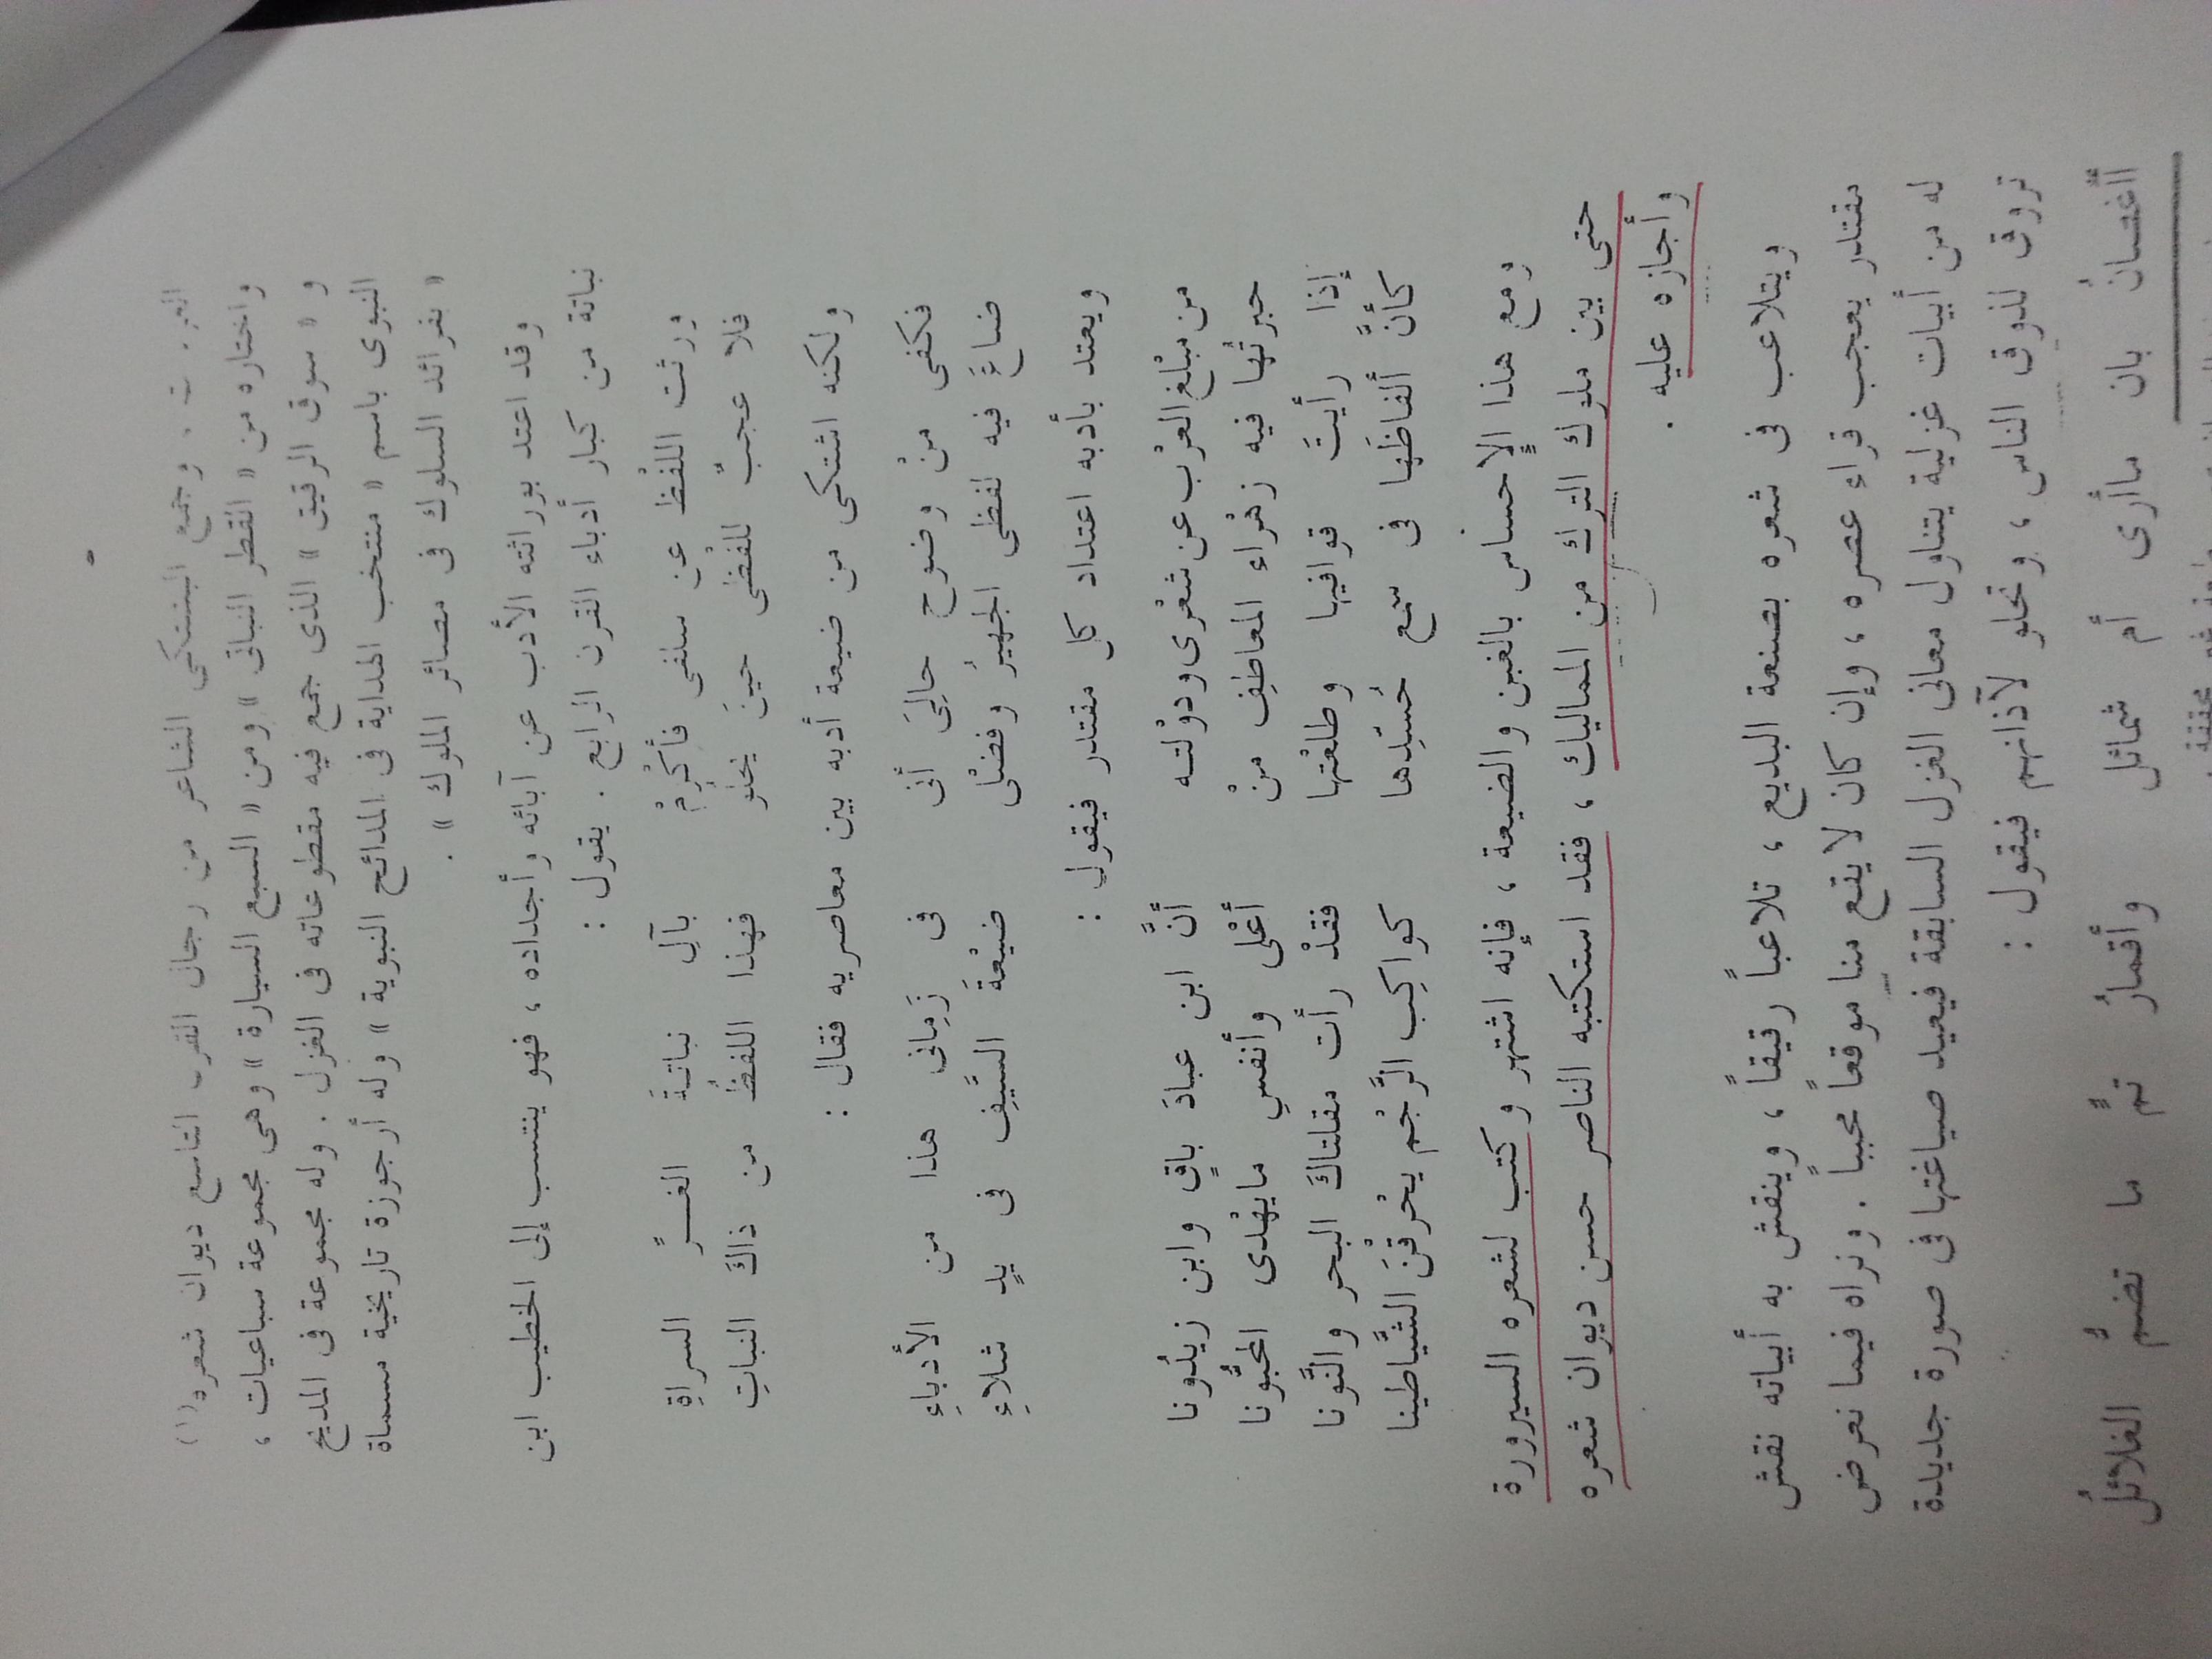 وجمع البشتكى الشاعر من رجال القرن التاسع ديوان شعره(١)
واختاره من « القطر النباتى » ومن « السبع السيارة » وهى مجموعة سباعيات ،
و « سوق الرقيق » الذى جمع فيه مقطوعاته فى الغزل . وله مجموعة فى المديح
النبوى باسم « منتخب الهداية فى المدائح النبوية » وله أرجوزة تاريخية مسماة
« بفرائد السلوك فى مصائر الملوك » .
وقد اعتد بوراثته الأدب عن آبائه وأجداده ، فهو ينتسب إلى الخطيب ابن
نباتة من كبار أدباء القرن الرابع . يقول :
ورثت اللفْظ عن سلفى فأكْرِمْ بآلِ نباتةَ الغرِّ السراةِ
فلا عجبٌ للفْظى حينَ يحلو فهذا اللفظُ من ذاكَ النباتِ
ولكنه اشتكى من ضيعة أدبه بين معاصريه فقال :
فكفى منْ وضوح حالِىَ أنى فى زَمِانى هذا من الأدباءِ
ضاعَ فيه لفظى الجهيرُ وفضْلى ضيْعةَ السَّيفِ فى يدٍ شلاءِ
ويعتد بأدبه اعتداد كل مقتدر فيقول :
من مبْلغ العرْب عن شعْرى ودوْلته أنَّ ابن عبادَ باقٍ وابن زيدُونا
حبرتُها فيه زهْراء المعاطِف منْ أعْلى وأنفسِ مايهْدى المحبُّونا
إذا رأيتَ قوافيها وطلعْتها فقدْ رأت مقلتاكَ البحر والنُّونا
كأنَّ ألفاظَها فى سمع حُسّدِها كواكِب الرَّجْم يحْرقْنَ الشَّياطينا
ومع هذا الإحساس بالغبن والضيعة ، فإنه اشتهر وكتب لشعره السيرورة
حتى بين ملوك الترك من المماليك ، فقد استكتبه الناصر حسن ديوان شعره
وأجازه عليه .
ويتلاعب فى شعره بصنعة البديع ، تلاعباً رقيقاً ، وينقش به أبياته نقش
مقتدر يعجب قراء عصره ، وإن كان لا يقع منا موقعاً محبباً . ونراه فيما نعرض
له من أبيات غزلية يتناول معانى الغزل السابقة فيعيد صياغتها فى صورة جديدة
تروق لذوق الناس ، وتحلو لآذانهم فيقول :
أأغصانُ بان ماأرى أم شمائل وأقمارُ تمٍّ ما تضمُّ الغلائلُ